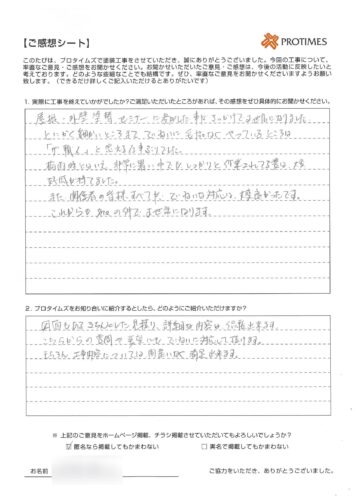 【ご感想シート】
PROTIMES
このたびは、プロタイムズで塗装工事をさせていただき、誠にありがとうございました。今回の工事について、
率直なご意見・ご感想をお聞かせください。お聞かせいただいたご意見・ご感想は、今後の活動に反映したいと
考えております。どのような些細なことでも結構です。ぜひ、率直なご意見をお聞かせくださいますようお願い
致します。(できるだけ詳しくご記入いただけるとありがたいです)
1. 実際に工事を終えていかがでしたか?ご満足いただいたところがあれば、その感想をぜひ具体的にお聞かせください。
屋根・外壁塗装セミナーに参加した
とにかく細かいところまで、ていねいに
と思える仕事ぶりでした。
非常に暑い中でも、しっかりと作業されてる姿は、大変
好感が持てました。
また、関係者の皆様すべてが、ていねいな対応で、大変良かったです。
これからもお世話になります。
2. プロタイムズをお知り合いに紹介するとしたら、どのようにご紹介いただけますか?
見積り、詳細な内容は、信頼出来ます。
こちらからの質問や要望にも、ていねいに対応して頂けます。
もちろん、工事内容については、間違いなく満足出来ます。
※ 上記のご意見をホームページ掲載、チラシ掲載させていただいてもよろしいでしょうか?
☑ 匿名なら掲載してもかまわない □ 実名で掲載してもかまわない
お名前 ご協力をいただき、ありがとうございました。